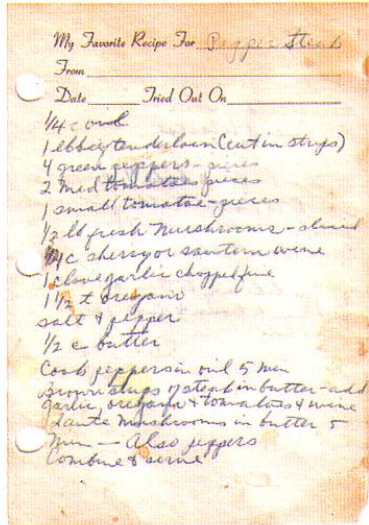 My Favorite Recipe For Pepper Steak
From
Date Tried Out On
1/4 c oil
1 lb beef tenderloin (cut in strips)
4 green peppers - pieces
2 med tomatoes pieces
1 small tomatoe - pieces
1/2 lb fresh mushrooms - sliced
1/4 c sherry or sautern wine
1 clove garlic chopped fine
1 1/2 t oregano
salt & pepper
1/2 c butter
Cook peppers in oil 5 min
Brown strips of steak in butter - add
garlic, oregano & tomatoes & wine
Saute mushrooms in butter 5
min - Also peppers
Combine & serve